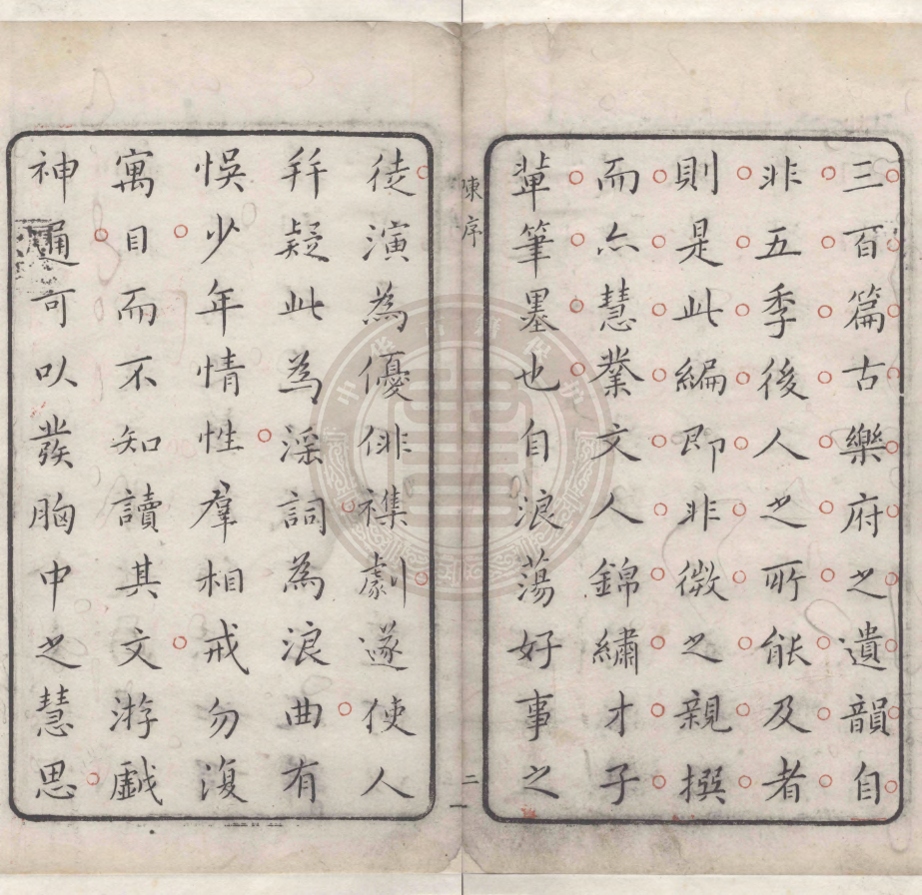 三百篇古樂府之遺韻自
非五季後人之所能及者
則是此編即非微之親撰
而亦慧業文人錦繡才子
輩筆墨也自浪蕩好事之
陳序
二
徒演為優俳襍劇遂使人
拜疑此為淫詞為浪曲有
悞少年情性羣相戒勿復
寓目而不知讀其文游戲
神通可以發胸中之慧思